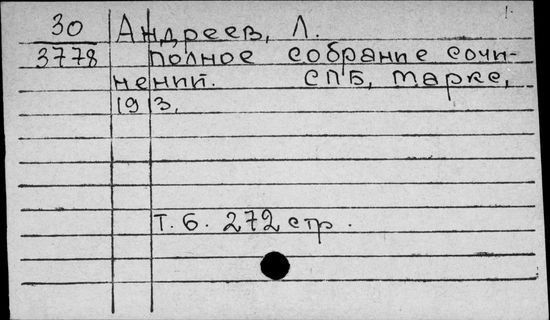 30 Андреев, Л.
3778 полное собрание сочи-
нений. СПБ, Марке,
1913.
Т. 6. 272 стр.